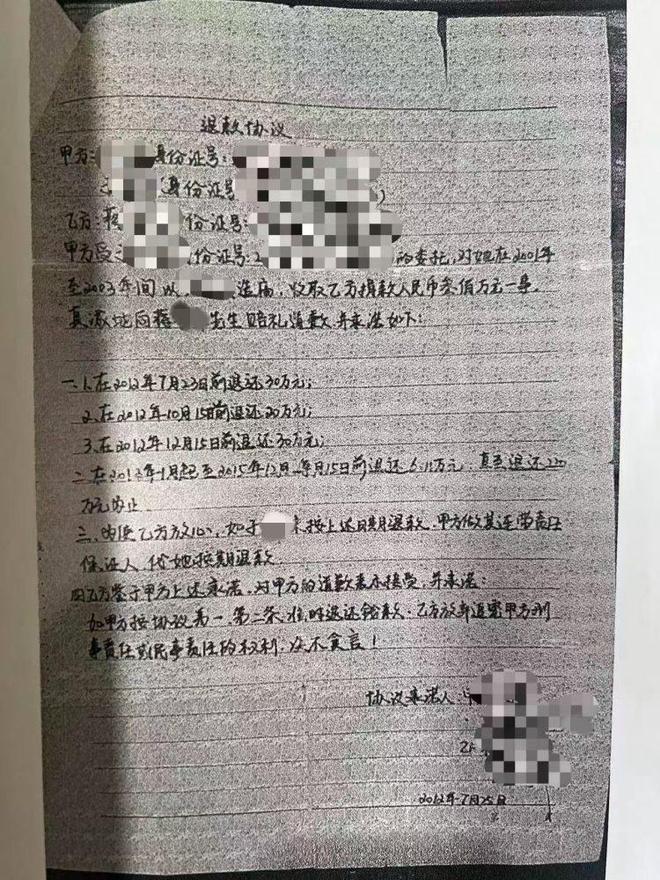 退款协议
甲方: 身份证号:
身份证号
乙方:蒋 份证号:
甲方受 份证号: 的委托,对她在2001年
至2003年间以 造庙,收取乙方捐款人民币 佰万元一事,
真诚地向蒋 先生赔礼道歉,并承诺如下:
一.1.在2012年7月23日前退还30万元;
2.在2012年10月15日前退还20万元;
3.在2012年12月15日前退还30万元;
二.在2012年1月起至2015年12月.每月15日前退还6.11万元.直至退还220
万元为止.
三.为使乙方放心,如于 未按上述日期退款.甲方做其连带责任
保证人.代她按期退款.
因乙方鉴于甲方上述承诺,对甲方的道歉表示接受,并承诺:
如甲方按协议第一、第二条准时退还钱款.乙方放弃追究甲方刑
事责任或民事责任的权利,决不食言!
协议承诺人:甲
乙
2012年7月25日